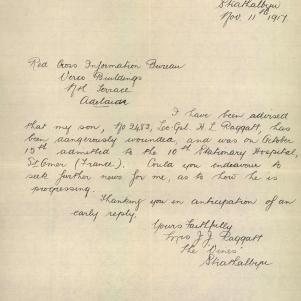 Strathalbyn
Nov. 11th 1917
Red Cross Information Bureau
Verco Buildings
Nth Terrace
Adelaide
I have been advised
that my son, No 2483, Lce Cpl. H. L. Raggatt, has
been dangerously wounded, and was on October
15th admitted to the 10th Stationary Hospital,
St Omer (France). Could you endeavour to
seek further news for me, as to how he is
progressing.
Thanking you in anticipation of an
early reply.
Yours Faithfully
Mrs J. J. Raggatt
The Pines
Strathalbyn